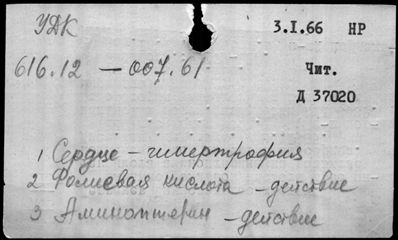 УДК
3.I.66 НР
616.12 — 007.61
Чит.
Д 37020
1 Сердце – гипертрофия
2 Фолиевая кислота – действие
3 Аминоптерин – действие